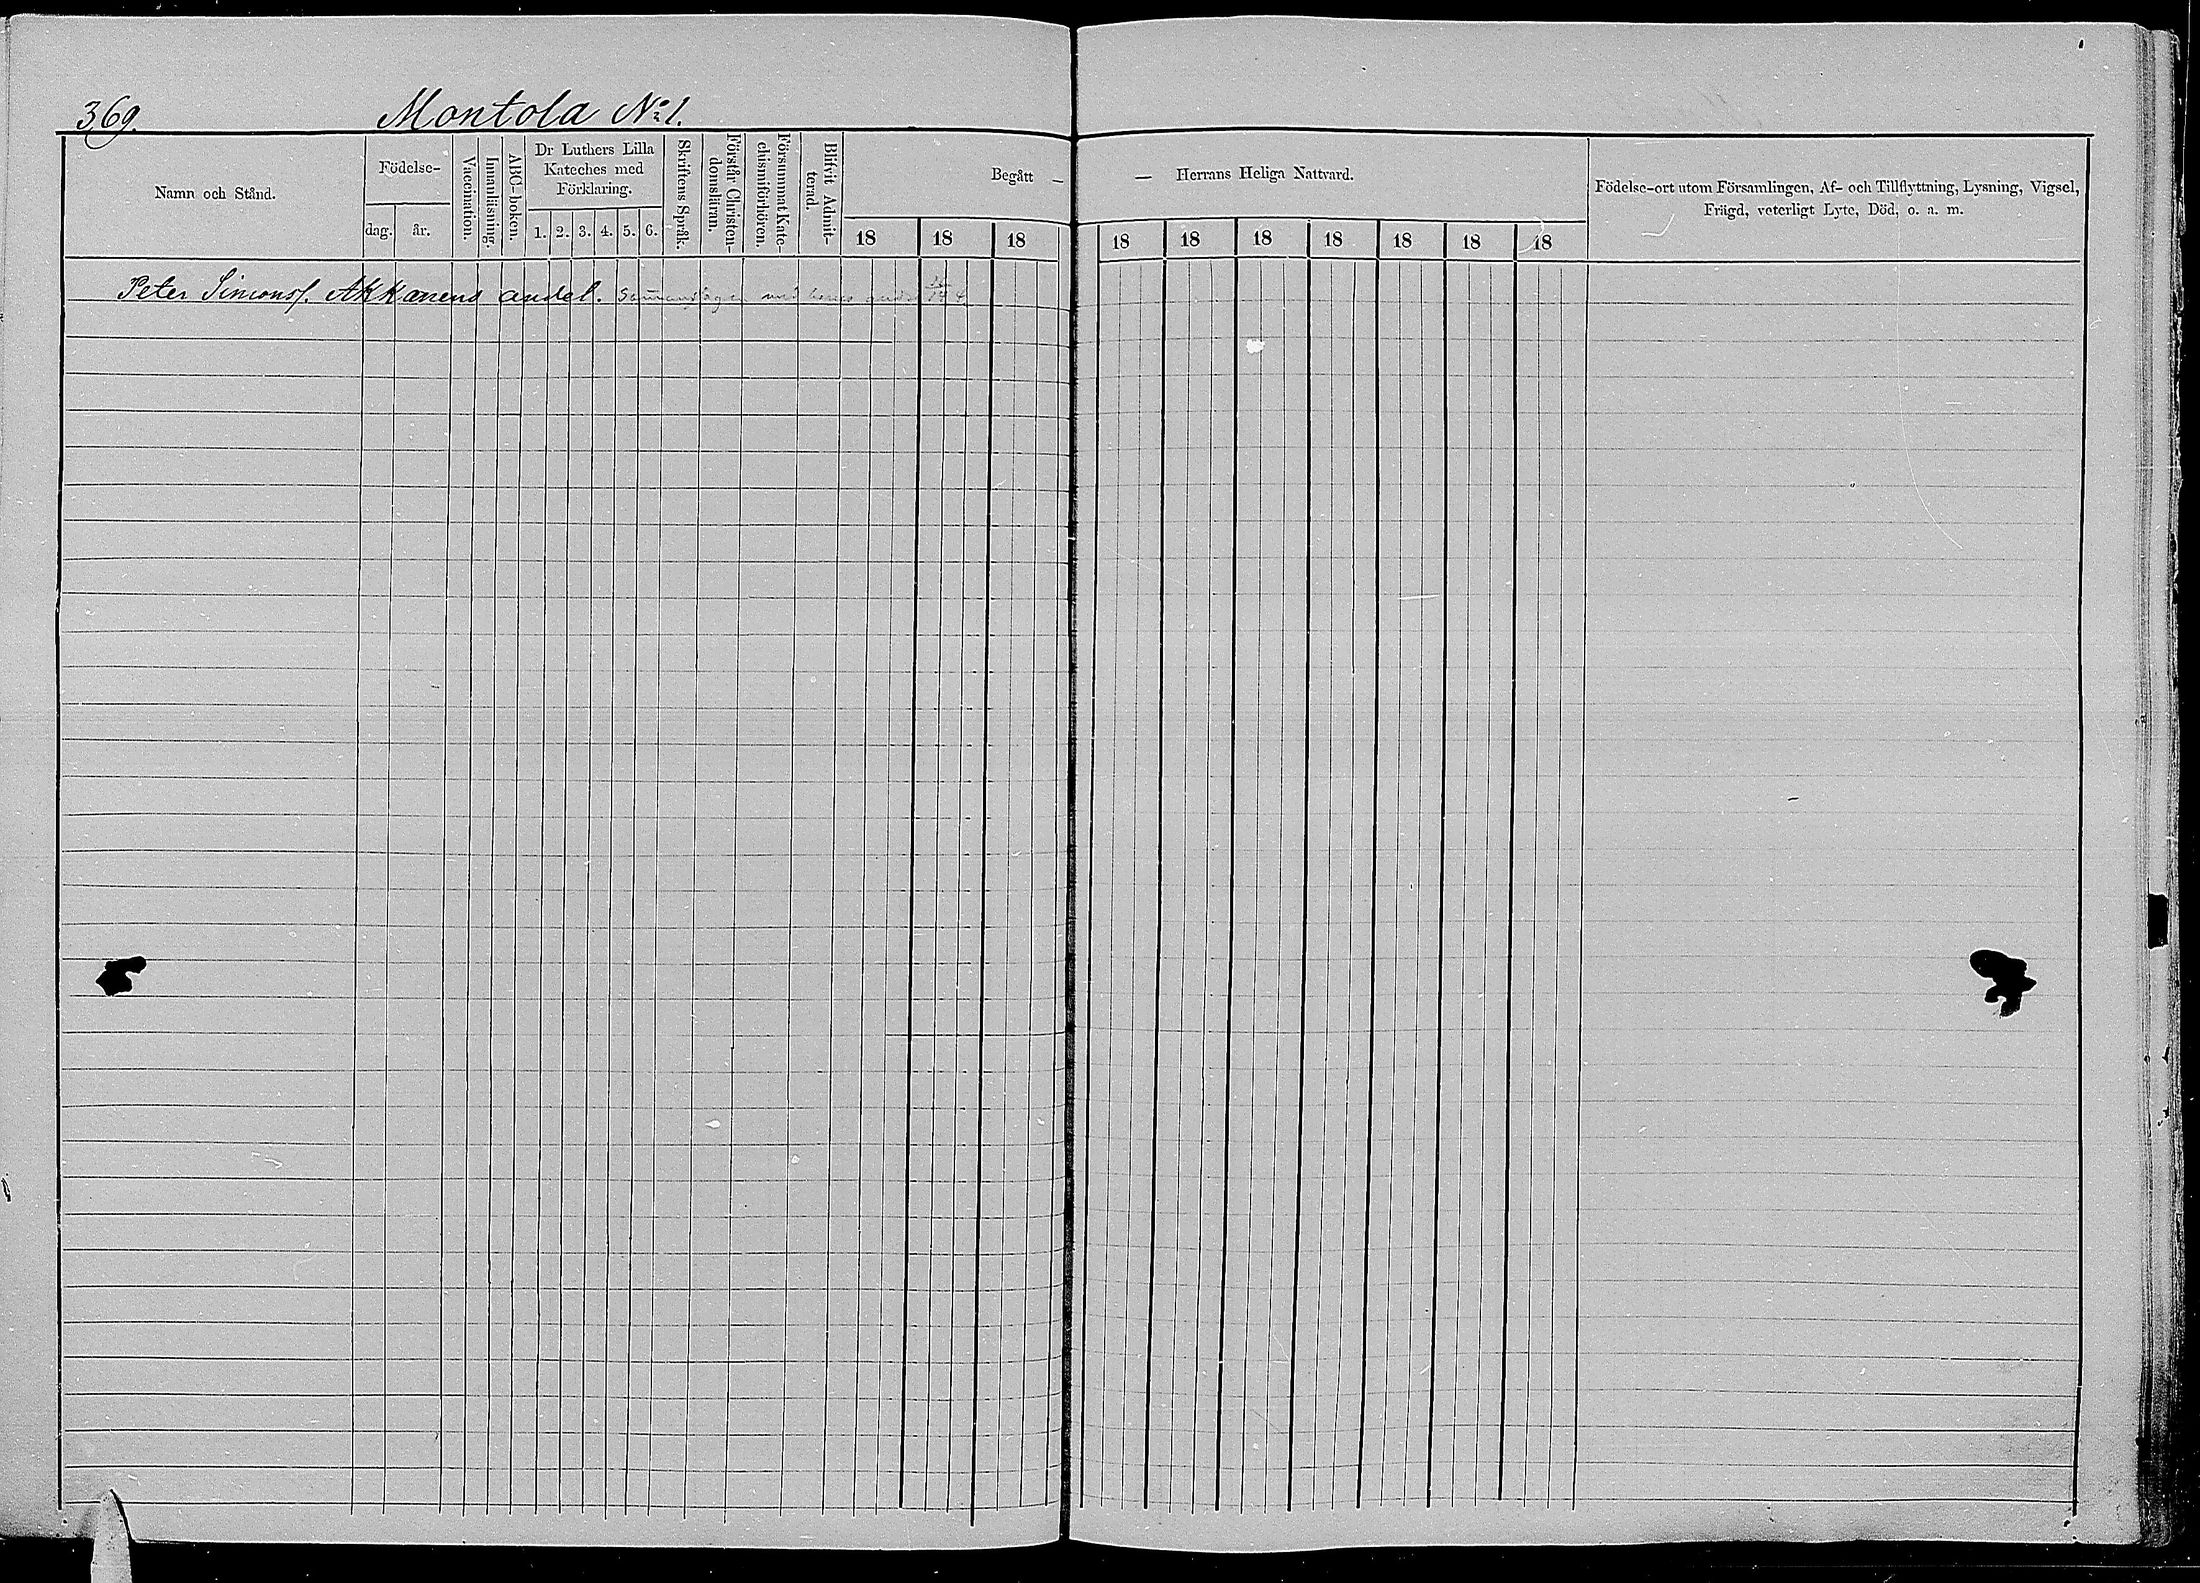 369.
Montola No 1.
Namn och Stånd.
Födelse-
dag.
år.
Vaccination.
Innanläsning.
ABC-boken.
Dr Luthers Lilla
Kateches med
Förklaring.
1. 2. 3. 4. 5. 6.
Skriftens Språk.
Förstår Christen-
domsläran.
Försummat Kate-
chismiförhören.
Blifvit Admit-
terad.
Begått —
18 18 18
— Herrans Heliga Nattvard.
18 18 18 18 18 18 18
Födelse-ort utom Församlingen, Af- och Tillflyttning, Lysning, Vigsel,
Frägd, veterligt Lyte, Död, o. a. m.
Peter Simonss. Akkanens andel.